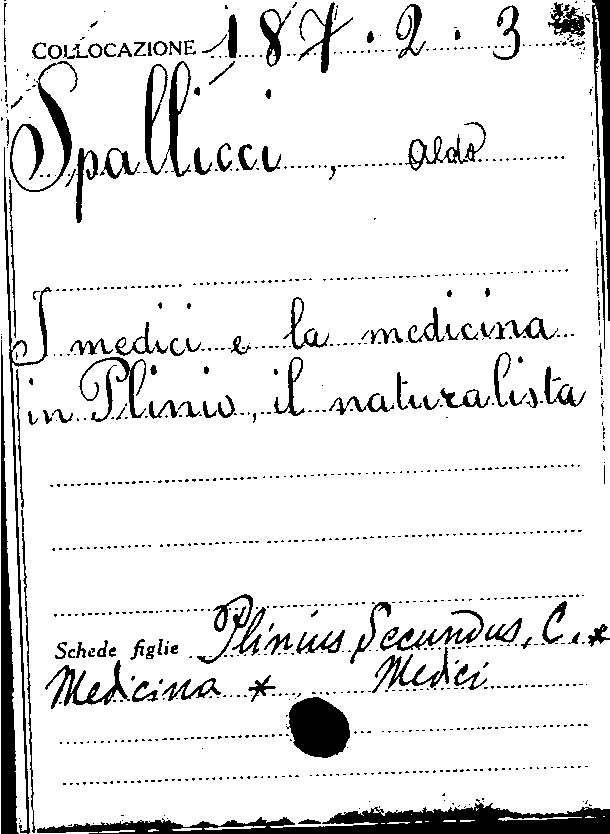 COLLOCAZIONE 187.2.3
Spallicci, Aldo
I medici e la medicina
in Plinio, il naturalista
Schede figlie Plinius Secundus, C. *
Medicina * Medici